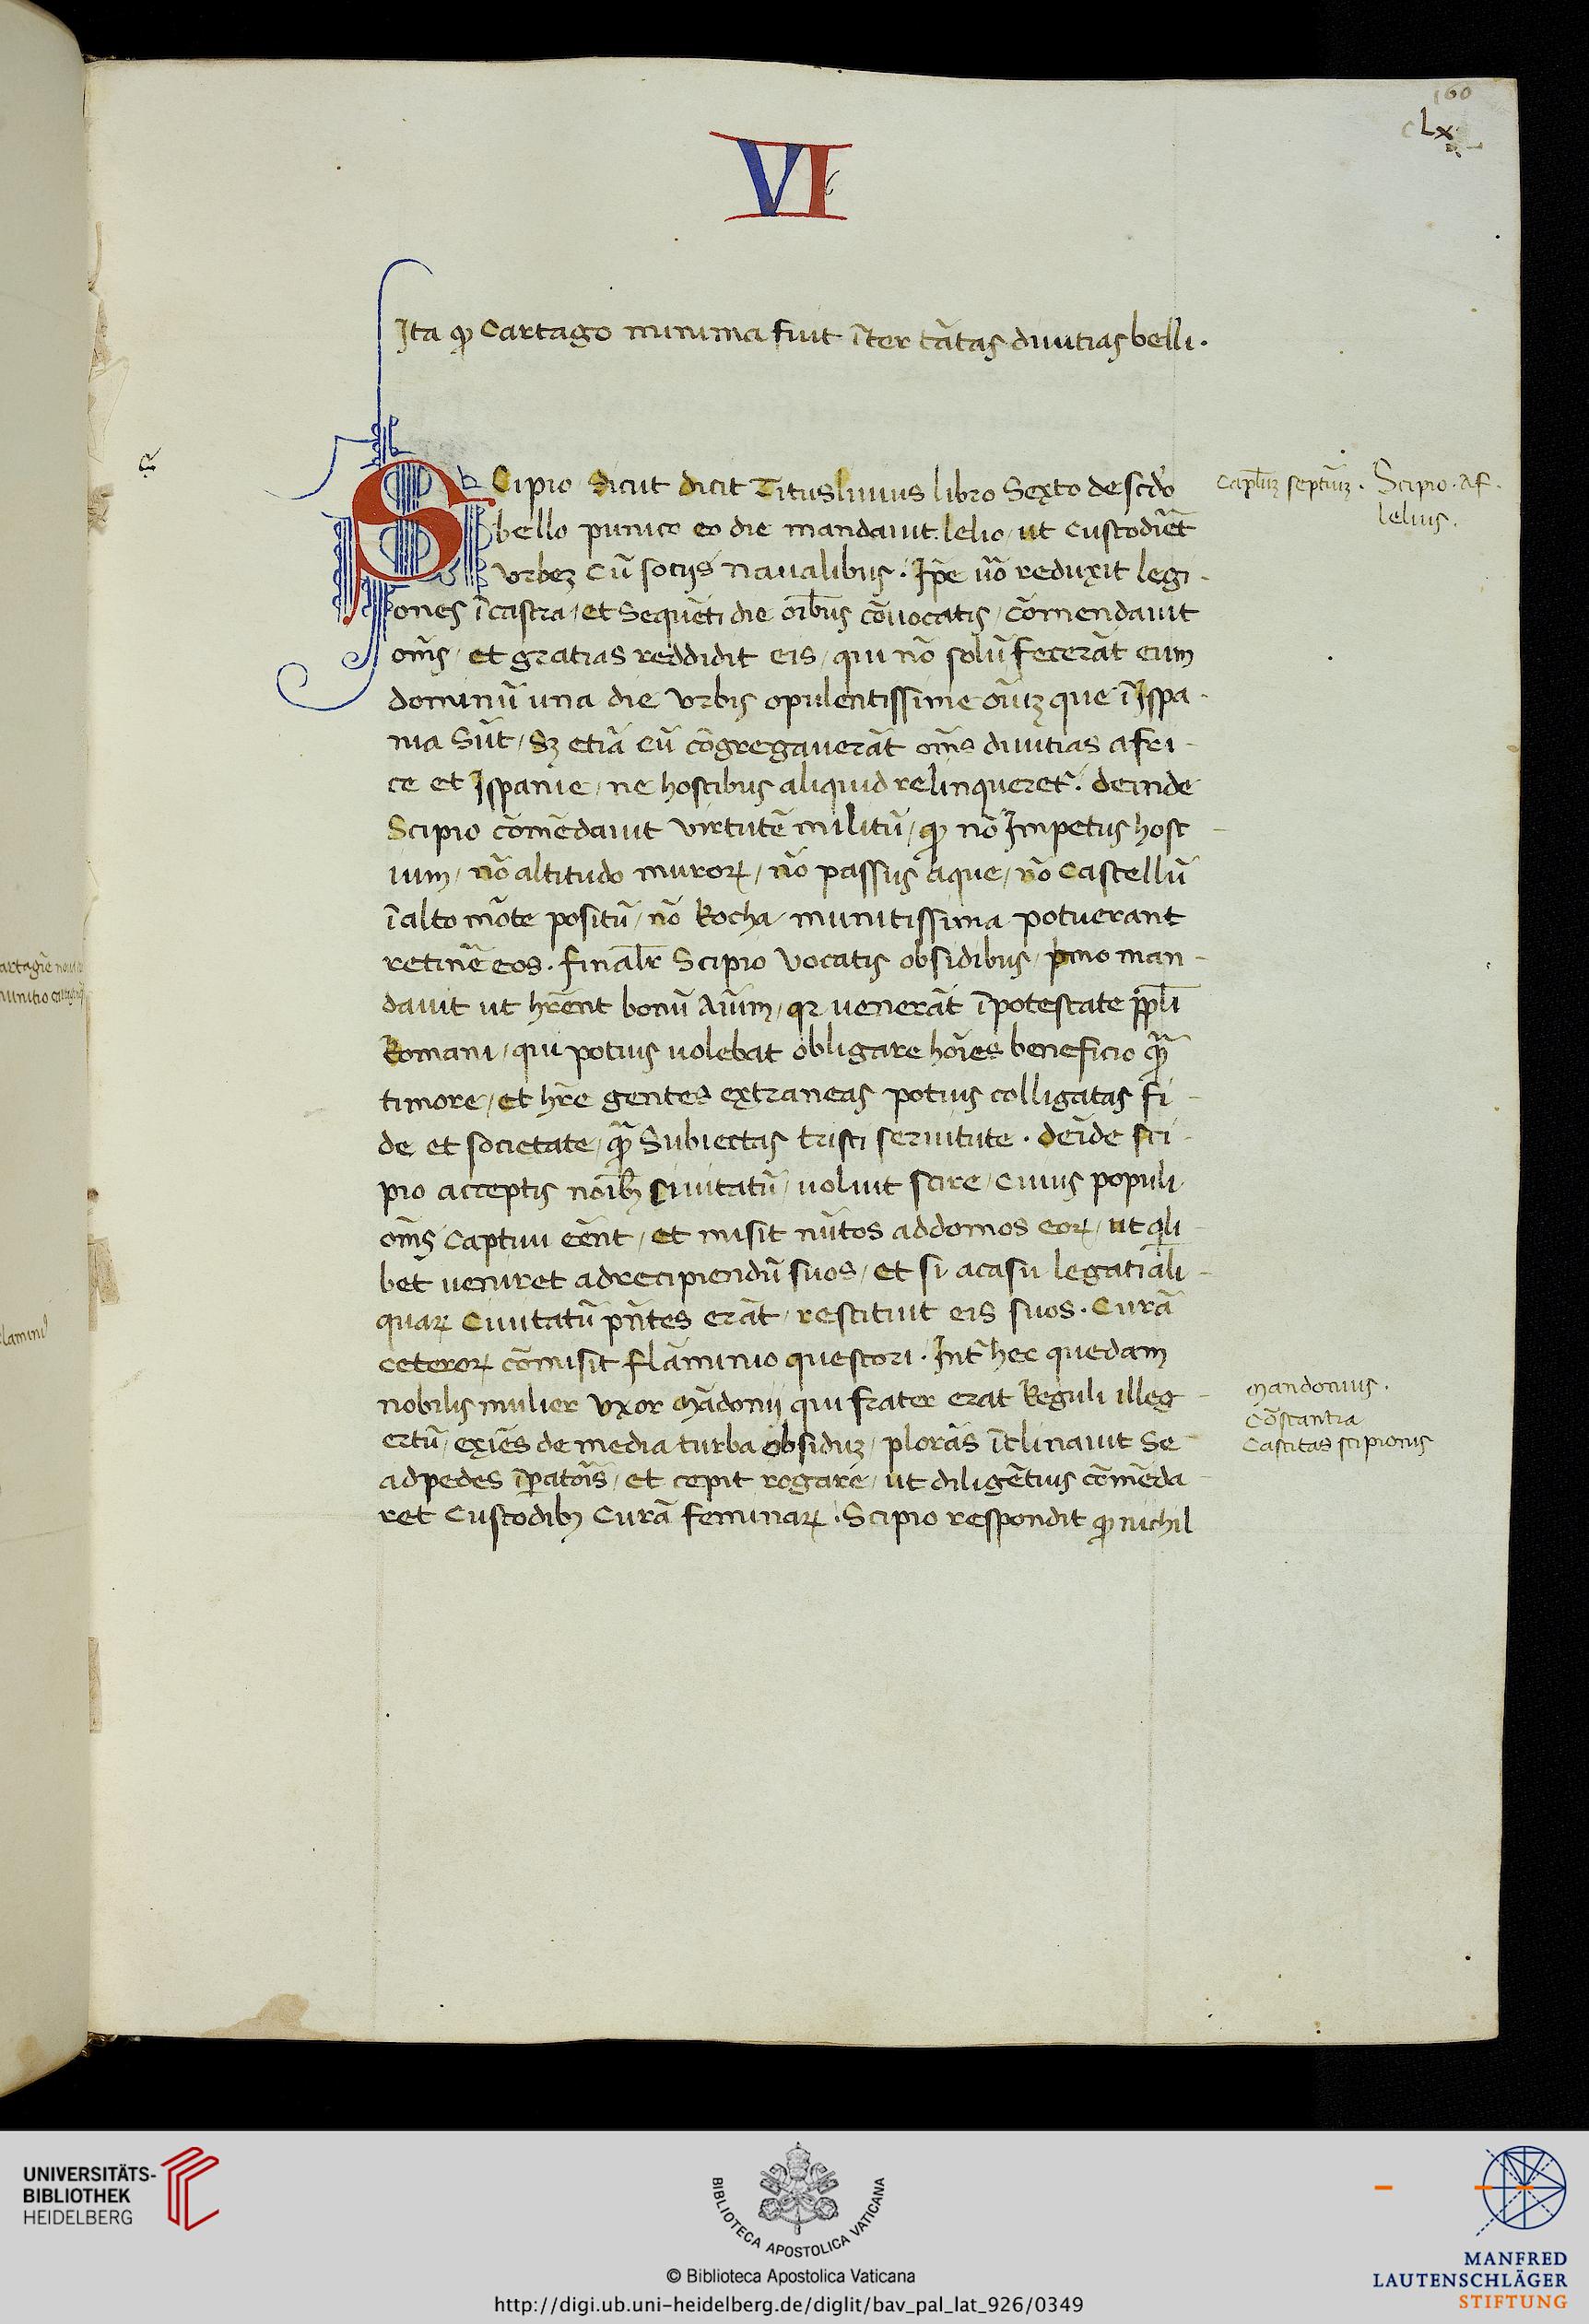 160
cLx
VI
Ita ꝙ Cartago minima fuit īter tātas diuitias belli.
SCipio sicut dicit Titusliuius libro Sexto de scďo
bello punico eo die mandauit lelio / ut custodiēt
urbeꝫ cū sociis naualibus. Ip̄e ūo reduxit legi-
ones ī castra / et sequēti die oībus cōuocatis / cōmendauit
om̄s / et gratias reddidit eis / qui nō solū fecerāt eum
dominū una die urbis opulentissime oīuꝫ que ī Ispa-
nia sūt / sꝫ etiā eū cōgregauerāt om̄s diuitias afri-
ce et Ispanie / ne hostibus aliquid relinqueret᷑. deinde
Scipio cōmēdauit virtutē militū / ꝙ nō Impetus host-
ium / nō altitudo muroꝝ / nō passus aque / nō Castellū
ī alto mōte positū / nō Rocha munitissima potuerant
retinē̄ eos. finalr̄ Scipio vocatis obsidibus / pmo man-
dauit ut hr̄ent bonū aīum / qꝛ uenerāt ī potestate ppl̄i
Romani / qui potius uolebat obligare hoīes beneficio qᷓ
timore / et hr̄e gentes extraneas potius colligatas fi-
de et societate / qᷓ Subiectas tristi seruitute. deīde sci-
pio acceptis noībꝫ ciuitatū / uoluit scire / Cuius populi
om̄s Captiui eēnt / et misit nūtos addomos eoꝝ / ut qili-
bet ueniret adrecipiendū suos / et si acasu legati ali-
quaꝝ Ciuitatū pn̄tes erāt / restituit eis suos. Curā
ceteroꝝ cōmisit flaminio questori. Int᷑ hec quedam
nobilis mulier vxor Mādonij qui frater erat Reguli illeg-
ertū / exiēs de media turba obsiduꝫ / plorās īclinauit se
adpedes īpatoīs / et cepit rogare / ut diligētius cōmēda-
ret Custodibꝫ Curā feminaꝝ. Scipio respondit ꝙ nichil
Capl̄uꝫ septīuꝫ. Scipio. Af.
lelius.
Mandonius.
Cōstantia
Castitas scipionis
UNIVERSITÄTS-
BIBLIOTHEK
HEIDELBERG
BIBLIOTECA APOSTOLICA VATICANA
© Biblioteca Apostolica Vaticana
http://digi.ub.uni-heidelberg.de/diglit/bav_pal_lat_926/0349
MANFRED
LAUTENSCHLÄGER
STIFTUNG